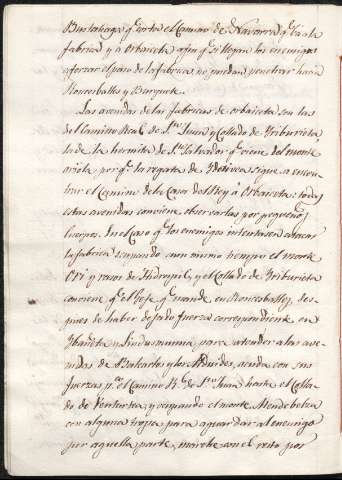 Bustalaga qe. corta el Camino de Navarra qe. va à la
fabrica y à Orbaiceta afin qe. si llegan los enemigos
aforzar el paso de la fabrica no puedan penetrar hacia
Roncesballes y Burguete.
Las avenidas de las fabricas de orbaiceta son las
del Camino Real de Sn. Juan y Collado de Yriburieta
la de la hermita de Sn. Salvador qe. viene del monte
por qe. la regata de sigue a encon-
trar el Camino de la Casa del Rey à Orbaiceta: todas
estas avenidas conviene observarlas por pequeños
cuerpos. En el Caso qe. los enemigos intentasen atacar
la fabrica ocupando aun mismo tiempo el monte
Ori y rasos de y el Collado de Yriburieta
conviene qe. el Gefe qe. mande en Roncesballes, des-
pues de haber dejado fuerza correspondiente en
Ybañeta y Lindusmunia para atender a las ave-
nidas de Balcarlos y los Alduides, acuda con sus
fuerzas pr. el Camino Rl. de Sn. Juan hasta el Colla-
do de Ventartea, y ocupando el monte Mendebelza
con alguna tropa para aguardar al enemigo
por aquella parte, marche con el resto por